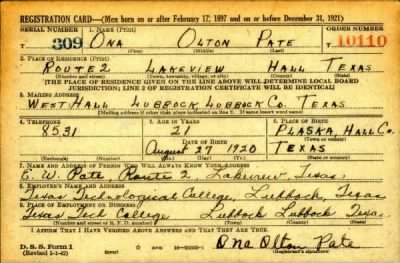 REGISTRATION CARD—(Men born on or after February 17, 1897 and on or before December 31, 1921)
SERIAL NUMBER 1. NAME (Print) ORDER NUMBER
T 309 ONA OLTON PATE 10110
(First) (Middle) (Last)
2. PLACE OF RESIDENCE (Print)
ROUTE 2 LAKEVIEW HALL TEXAS
(Number and street) (Town, township, village, or city) (County) (State)
[THE PLACE OF RESIDENCE GIVEN ON THE LINE ABOVE WILL DETERMINE LOCAL BOARD
JURISDICTION; LINE 2 OF REGISTRATION CERTIFICATE WILL BE IDENTICAL]
3. MAILING ADDRESS
WEST HALL LUBBOCK, LUBBOCK CO. TEXAS
[Mailing address if other than place indicated on line 2. If same insert word same]
4. TELEPHONE 5. AGE IN YEARS 6. PLACE OF BIRTH
8531 21 PLASKA, HALL CO.
DATE OF BIRTH (Town or county)
August 27 1920 TEXAS
(Exchange) (Number) (Mo.) (Day) (Yr.) (State or country)
7. NAME AND ADDRESS OF PERSON WHO WILL ALWAYS KNOW YOUR ADDRESS
E. W. Pate, Route 2, Lakeview, Texas
8. EMPLOYER'S NAME AND ADDRESS
Texas Technological College, Lubbock, Texas
9. PLACE OF EMPLOYMENT OR BUSINESS
Texas Tech College Lubbock Lubbock Texas
(Number and street or R. F. D. number) (Town) (County) (State)
I AFFIRM THAT I HAVE VERIFIED ABOVE ANSWERS AND THAT THEY ARE TRUE.
D. S. S. Form 1
(Revised 1-1-42) (over)
Ona Olton Pate
(Registrant's signature)